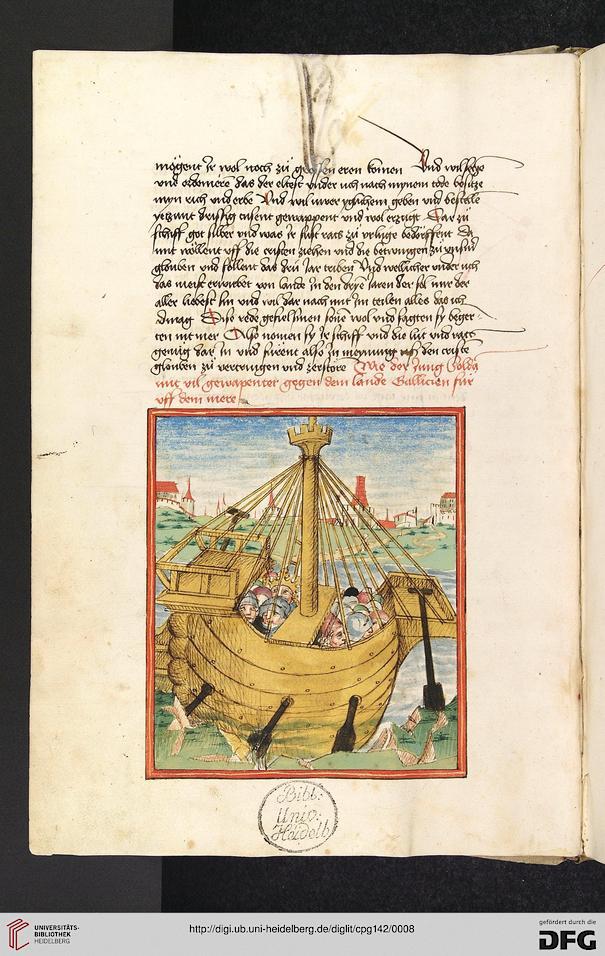 mögent ir wol noch zů grossen eren komen Und wil setze
und ordenieren das der eltest under uch nach mynem tode besitze
myn rich und erbe Und wil uwer yglichem geben und bestelle
yetzunt drissig tusent gewappent und wol erzugt Dar zů
schiff golt silber und was ir sust rats zů urluge bedörffent Da
mit wöllent uff die cristen ziehen und die betwungen zů unserm
glouben und söllent das dru Jar triben Und wellicher under uch
das meist erwirbet von lande in den dryn Jaren der sol mir der
aller liebest sin und wil dar nach mit Im teilen alles das ich
vermag Dise rede gefiel sinen sone wol und sagten sy beger
ten nit mer Also nomen sy ir schiff und die lut und rats
genůg dar In und fůrent also In meynung uff den criste
glouben zů vertringen und zerstöre Wie der Jung Soldan
mit vil gewapenter gegen dem lande Gallicien fůr
uff dem mere
Bibl:
Univ:
Heidelb
UNIVERSITÄTS-
BIBLIOTHEK
HEIDELBERG
http://digi.ub.uni-heidelberg.de/diglit/cpg142/0008
gefördert durch die
DFG